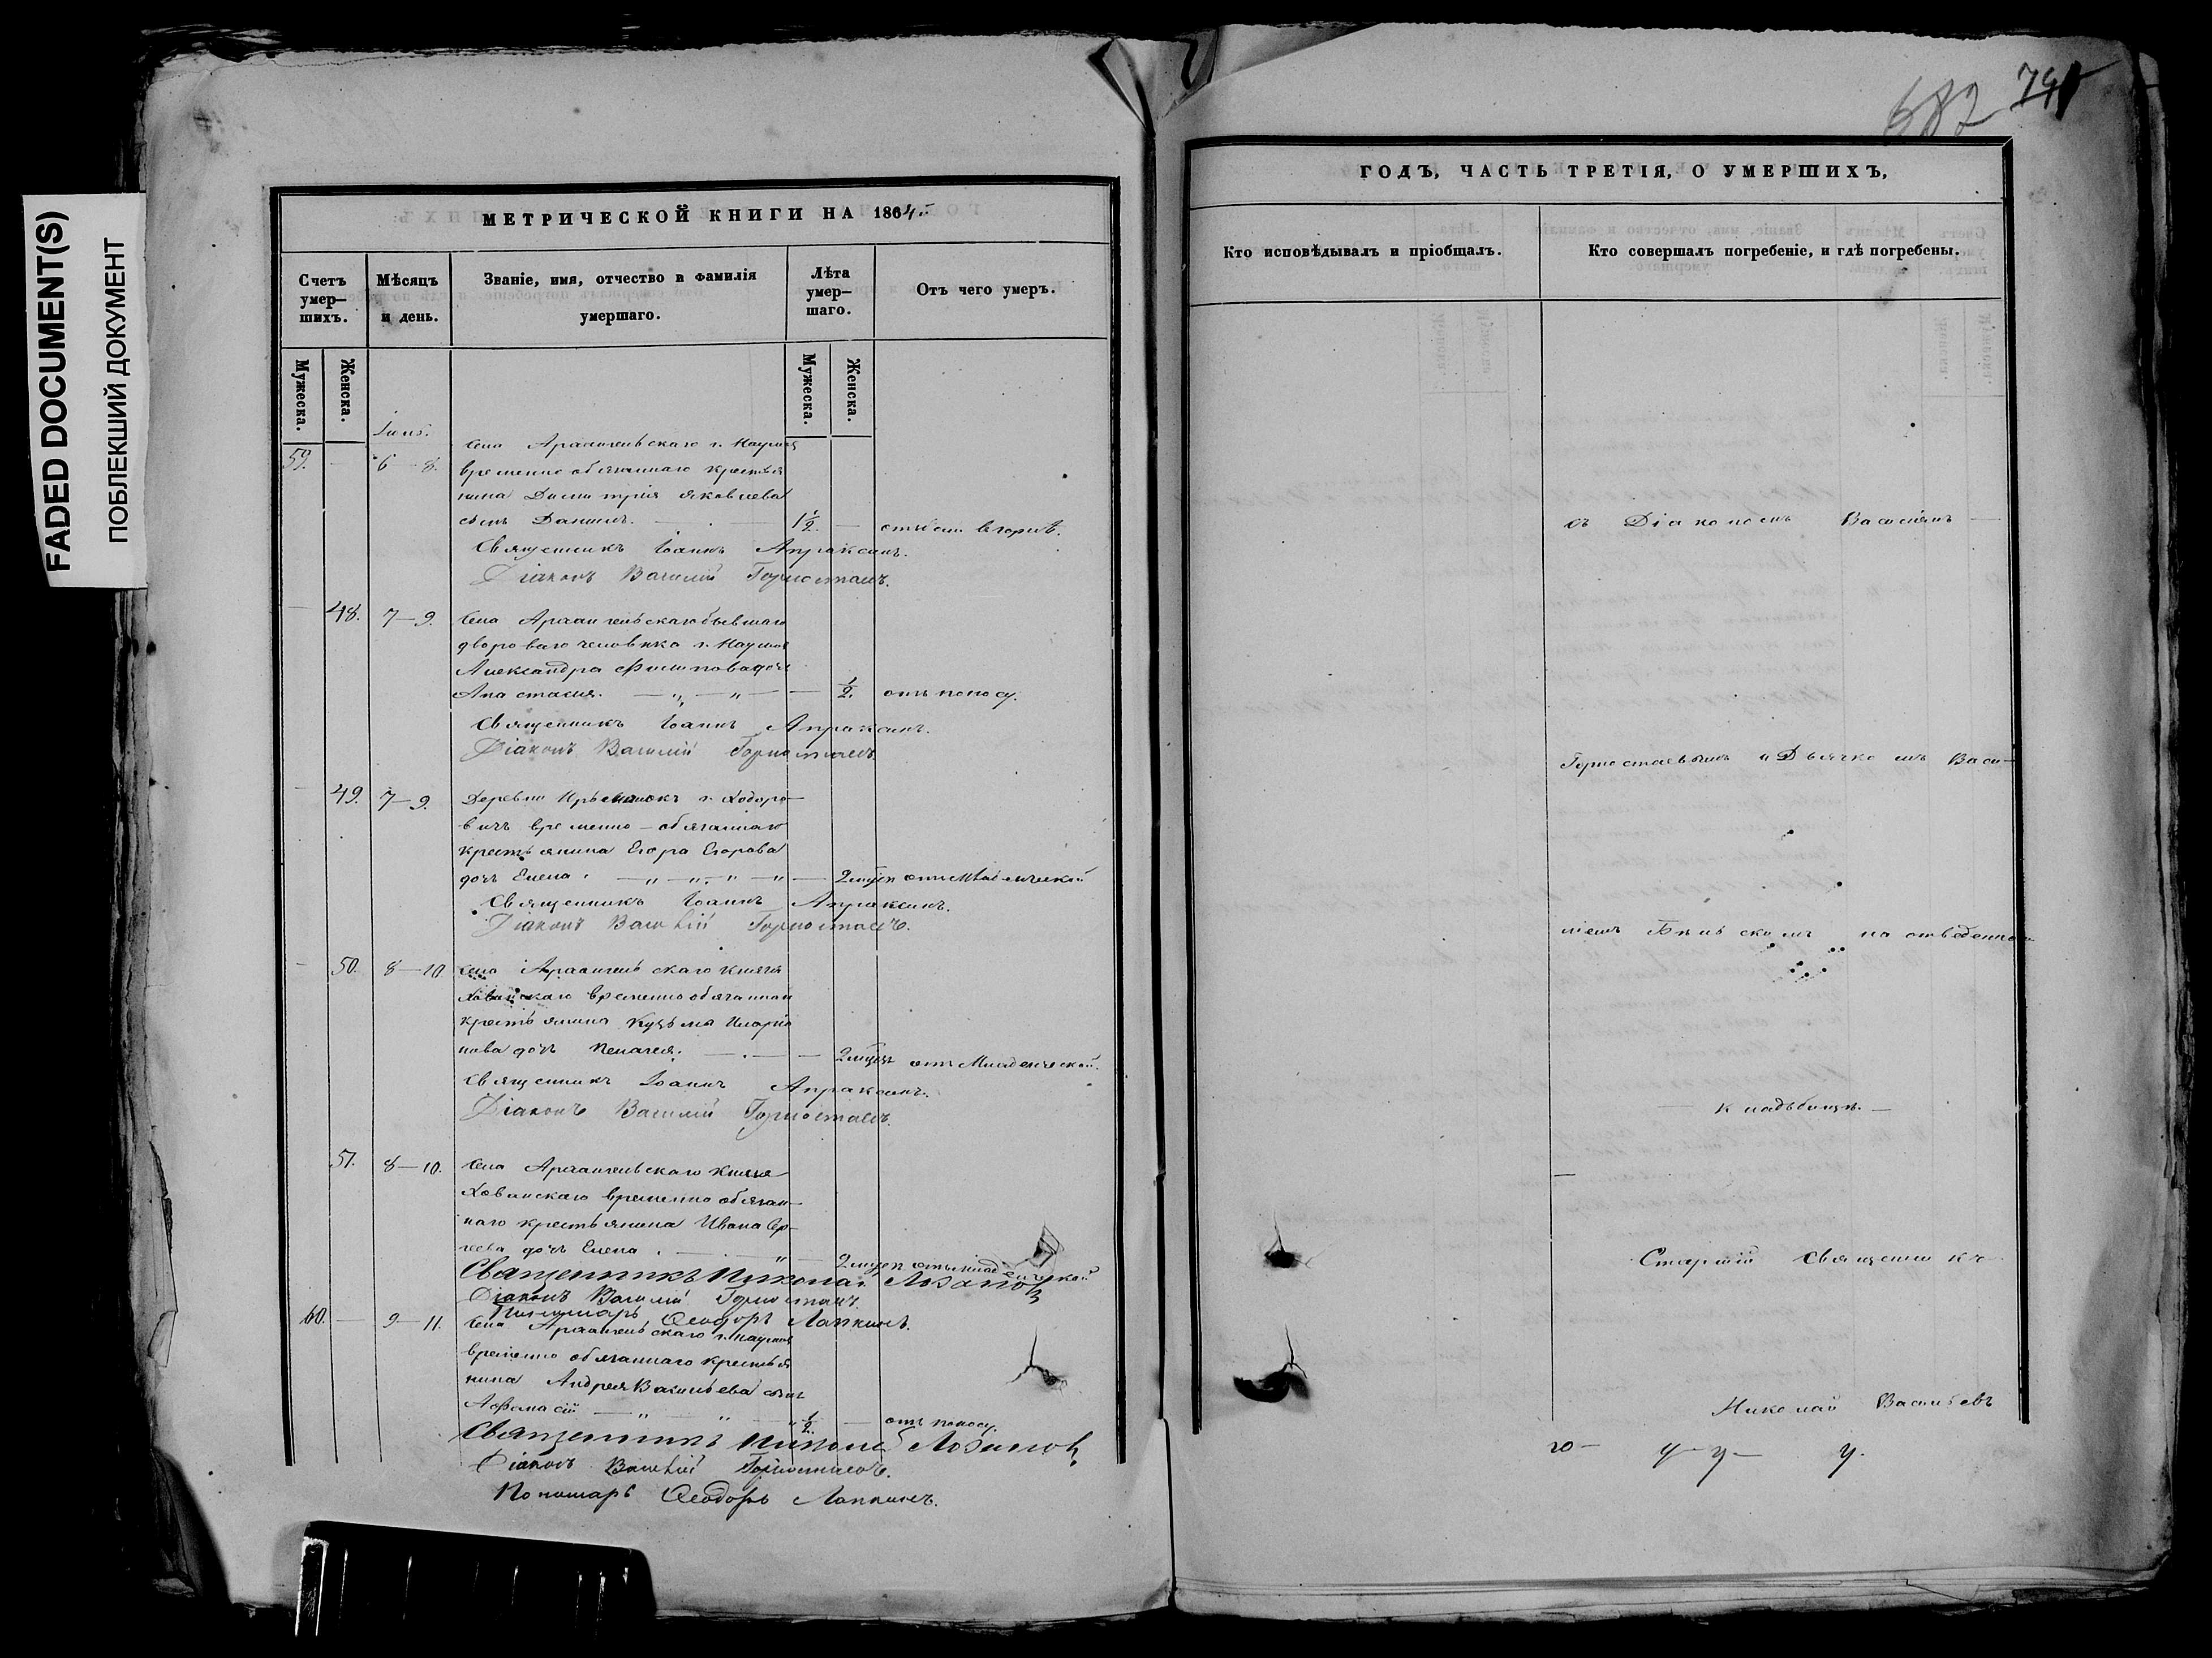 FADED DOCUMENT(S)
ПОБЛЕКШИЙ ДОКУМЕНТ
МЕТРИЧЕСКОЙ КНИГИ НА 1864
Счетъ умер–шихъ.
Мѣсяцъ и день.
Званіе, имя, отчество и фамилія умершаго.
Лѣта умер–шаго.
Отъ чего умеръ.
Мужеска.
Женска.
Мужеска.
Женска.
59. — 6—8.
Села Архангельскаго г. Наумова
временно обязаннаго крестья
нина Димитрія Яковлева
сынъ Даніилъ. — 1½ —
Священникъ Іоаннъ Апраксинъ.
Діаконъ Василій Горностаевъ.
— 48. 7—9. Села Архангельскаго бывшаго
двороваго человѣка г. Наумова
Александра Филиппова дочь
Анастасія. — „ — „ — — ½. отъ поносу.
Священникъ Іоаннъ Апраксинъ.
Діаконъ Василій Горностаевъ.
— 49. 7—9. Деревни г. Ходоро–
вичъ временно–обязаннаго
крестьянина Егора Егорова
дочь Елена. — „ — „ — „ — „ — 2 отъ младенческой
Священникъ Іоаннъ Апраксинъ.
Діаконъ Василій Горностаевъ.
— 50. 8—10 Села Архангельскаго Князя
Хованскаго временно обязаннаго
крестьянина Кузьмы Иларіо
нова дочь Пелагея. — . — — 2 отъ Младенческой.
Священникъ Іоаннъ Апраксинъ.
Діаконъ Василій Горностаевъ.
51. 8—10. Села Архангельскаго Князя
Хованскаго временно обязан–
наго крестьянина Ивана Сер–
геева дочь Елена. — „ — 2 отъ младенческой
Священникъ Николай Лозановъ
Діаконъ Василій Горностаевъ.
Пономарь Ѳеодоръ Лапкинъ.
60. — 9—11. Села Архангельскаго г. Наумова
временно обязаннаго крестья
нина Андрея Васильева сынъ
Афанасій — „ „ „ ½. — отъ поносу.
Священникъ Николай Лозановъ
Діаконъ Василій Горностаевъ.
Пономарь Ѳеодоръ Лапкинъ.
682
ГОДЪ, ЧАСТЬ ТРЕТІЯ, О УМЕРШИХЪ,
Кто исповѣдывалъ и пріобщалъ.
Кто совершалъ погребеніе, и гдѣ погребены.
съ Діакономъ Василіемъ —
Горностаевымъ и Дьячкомъ Васи–
ліемъ Бѣльскимъ на отведенномъ
— кладбищѣ. —
Старшій Священникъ
Николай Васильевъ